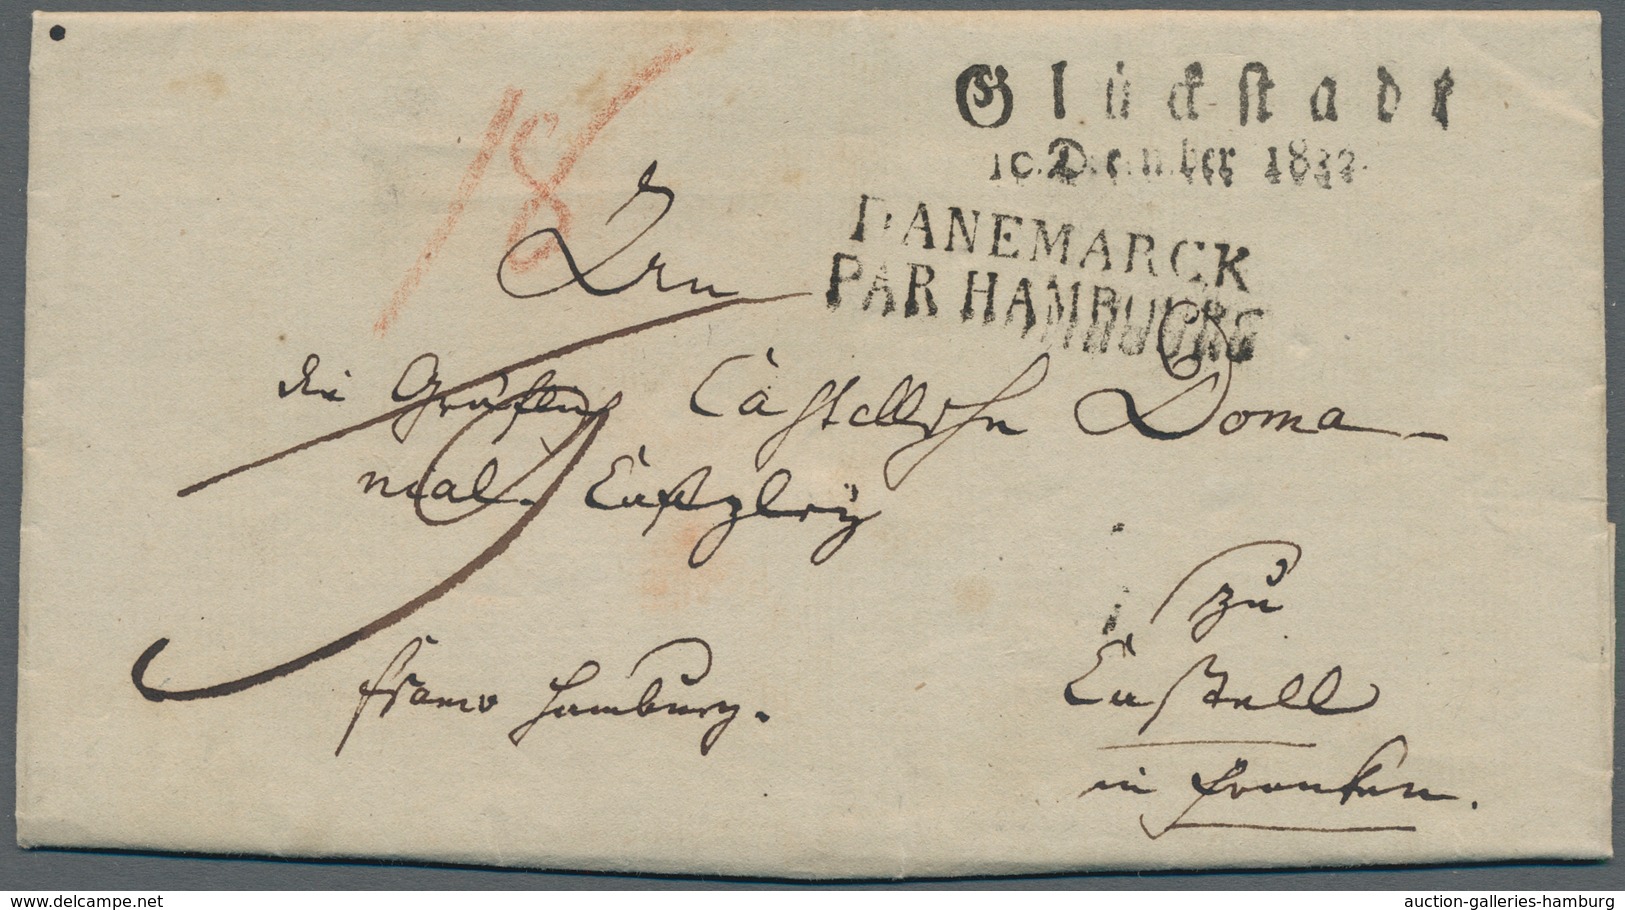 Glückstadt
10. December 1832.
DANEMARCK
PAR HAMBURG
18
die Gräflich Castellschen Doma-
nial-Canzley
zu
Castell
franco Hamburg.
in Franken.
www.delcampe.net
auction-galleries-hamburg